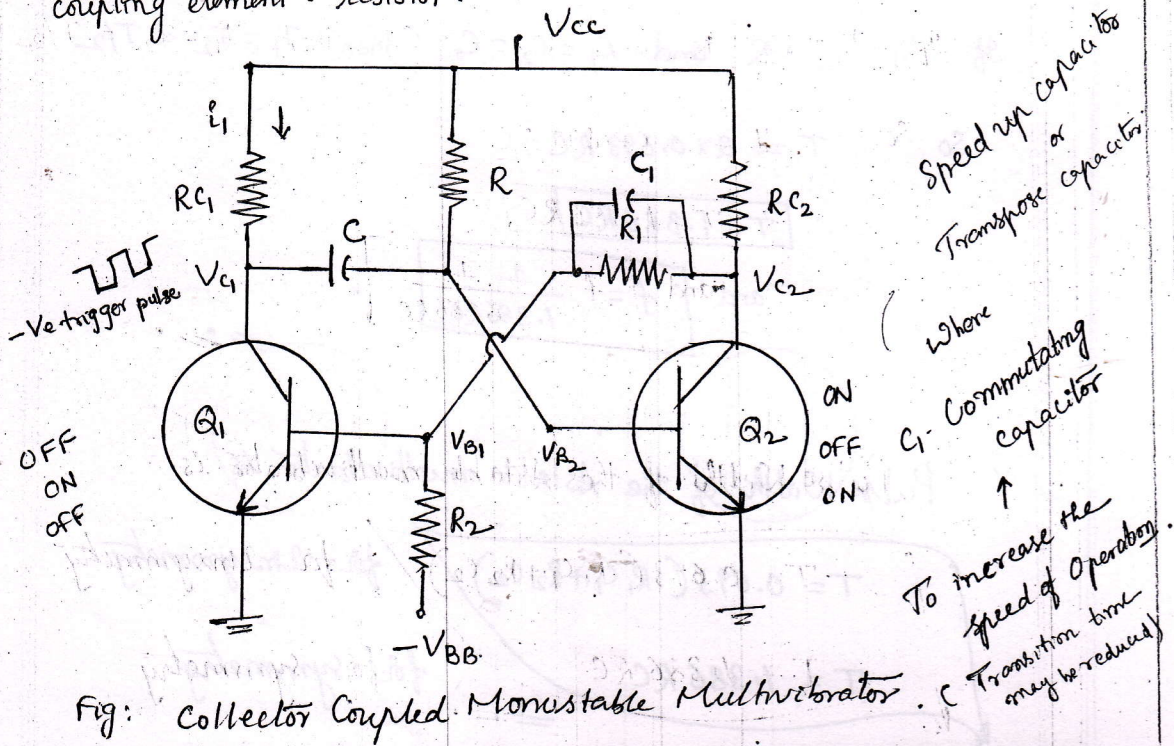 coupling element : resistor.
Vcc
i1 ↓
RC1
R
C1
R1
RC2
C
VC1
VC2
-Ve trigger pulse
Q1
Q2
VB1
VB2
OFF
ON
OFF
ON
OFF
ON
R2
-VBB.
Speed up capacitor
or
Transpose capacitor.
Where
C1 - Commutating
capacitor
↑
To increase the
speed of operation.
( Transition time
may be reduced)
Fig: Collector Coupled Monostable Multivibrator.